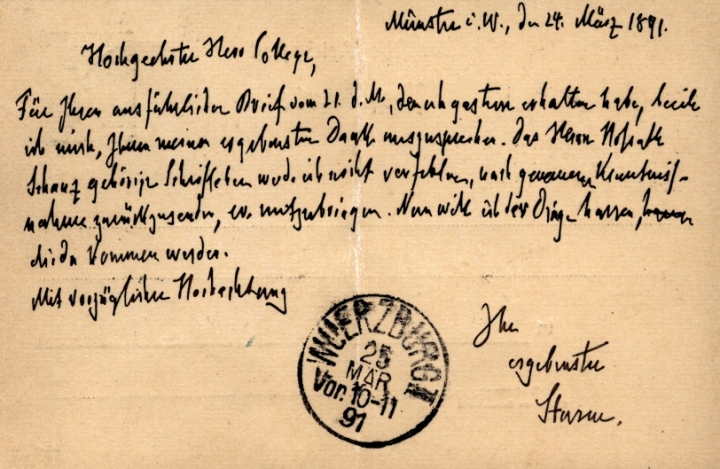 Münster i. W., den 24. März 1891.
Hochgeehrter Herr College,
Für Ihren ausführlichen Brief vom 21. d. M., den ich gestern erhalten habe, beeile
ich mich, Ihnen meinen ergebensten Dank auszusprechen. Das Herrn Hofrath
Schanz gehörige Schriftchen werde ich nicht verfehlen, nach genauerer Kenntniß-
nahme zurückzusenden, ev. mitzubringen. Nun will ich der Dinge harren,
die da kommen werden.
Mit vorzüglicher Hochachtung
Ihr
ergebenster
WUERZBURG I
25
MÄR
Vor. 10-11
91